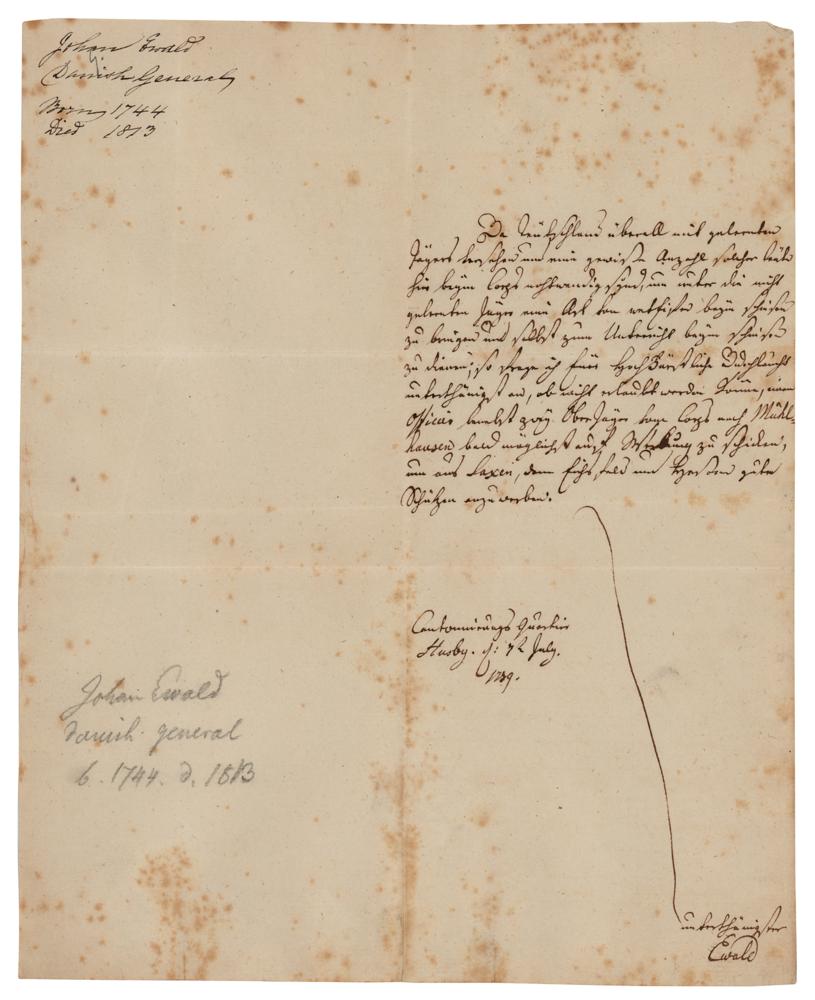 Johan Ewald
Danish General
Born 1744
Died 1813
Da Teutschland überall mit gelernten
Jägers versehen und eine gewisse Anzahl solcher Leute
hier beym Corps nothwendig sind, um unter die nicht
gelernten Jäger eine Art von beym schiesen
zu bringen und selbst zum Unterricht beym schiesen
zu dienen; so frage ich Euer HochFürstliche Durchlaucht
unterthänigst an, ob nicht erlaubt werden könne, einen
Officier benebst zwey OberJäger vom Corps nach Mühl-
hausen bald möglichst auf Werbung zu schicken,
um aus Saxen, dem Eichsfeld und Hessen gute
Schützen anzuwerben.
Cantonnirungs Quartier
Husby. d: July.
1789.
unterthänigster
Ewald
Johan Ewald
danish general
b. 1744. d. 1813